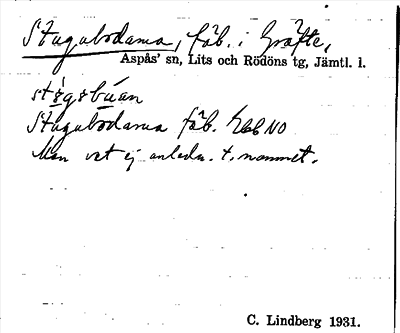 Stugubodarna, fäb. i Gräfte,
Aspås' sn, Lits och Rödöns tg, Jämtl. l.
Stugubodarna fäb. NO
Man vet ej anledn. t. namnet.
C. Lindberg 1931.